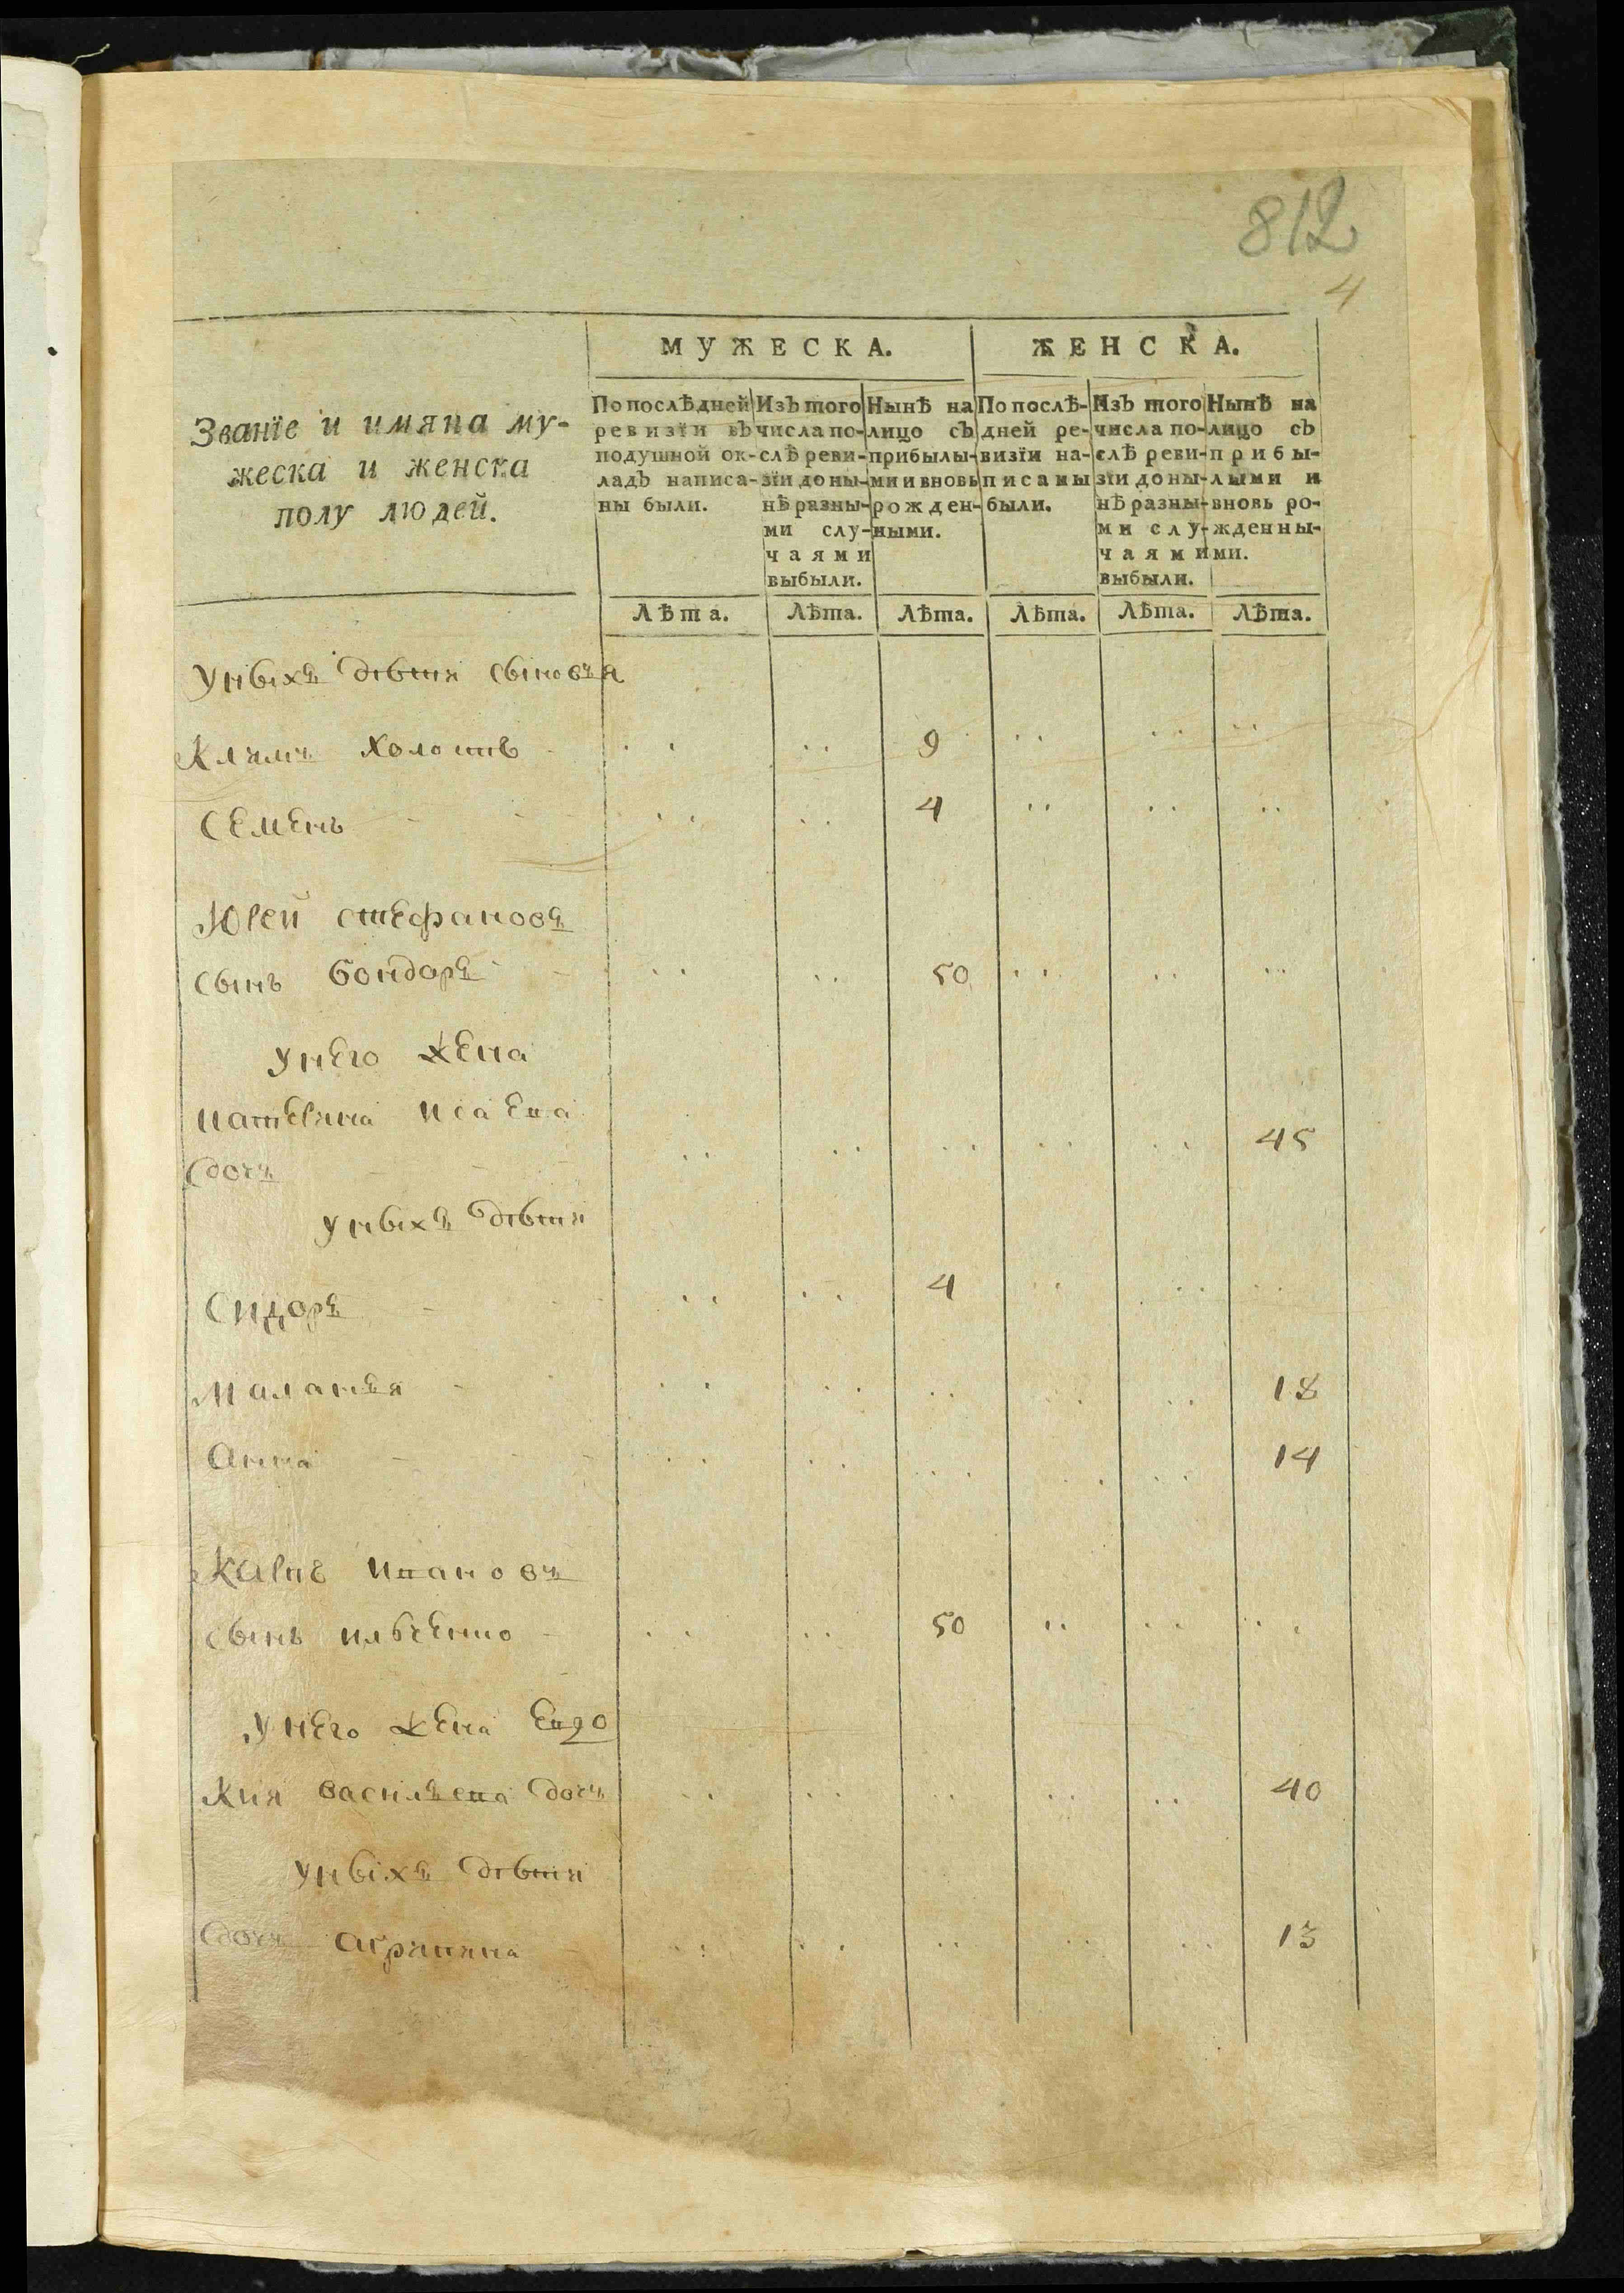 812
4
Званїе и имяна му-
жеска и женска
полу людей.
МУЖЕСКА.
ЖЕНСКА.
По послѣдней
ревизїи въ
подушной ок-
ладъ написа-
ны были.
Изъ того
числа по-
слѣ реви-
зїи до ны-
нѣ разны-
ми слу-
чаями
выбыли.
Нынѣ на
лицо съ
прибылы-
ми и вновь
рожден-
ными.
По послѣ-
дней ре-
визїи на-
писаны
были.
Изъ того
числа по-
слѣ реви-
зїи до ны-
нѣ разны-
ми слу-
чаями
выбыли.
Нынѣ на
лицо съ
прибы-
лыми и
вновь ро-
жденны-
ми.
Лѣта. Лѣта. Лѣта. Лѣта. Лѣта. Лѣта.
Унихъ дѣти сыновья
Климъ Холоши 9
Семенъ 4
Юрей Стефановъ
сынъ Бондоръ 50
Унего жена
Катерина Исаева
дочь 45
Унихъ дѣти
Сидоръ 4
Маланья 18
Анна 14
Карпъ Ивановъ
сынъ 50
Унего жена Евдо
кия Васильева дочь 40
Унихъ дѣти
дочь Агрипина 13